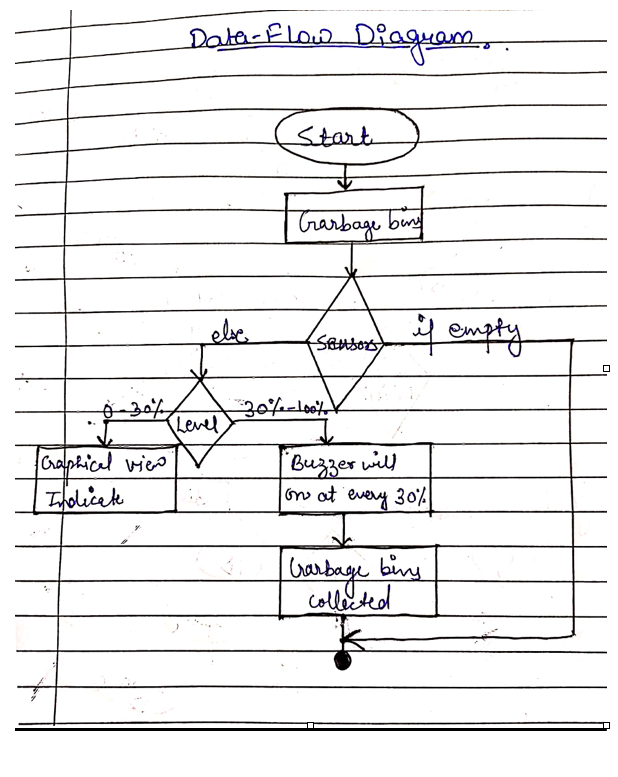 Data-Flow Diagram.
Start
Garbage bins
Sensors
if empty
else
0-30%
Level
30%-100%
Graphical view
Indicate
Buzzer will
on at every 30%
Garbage bins
collected